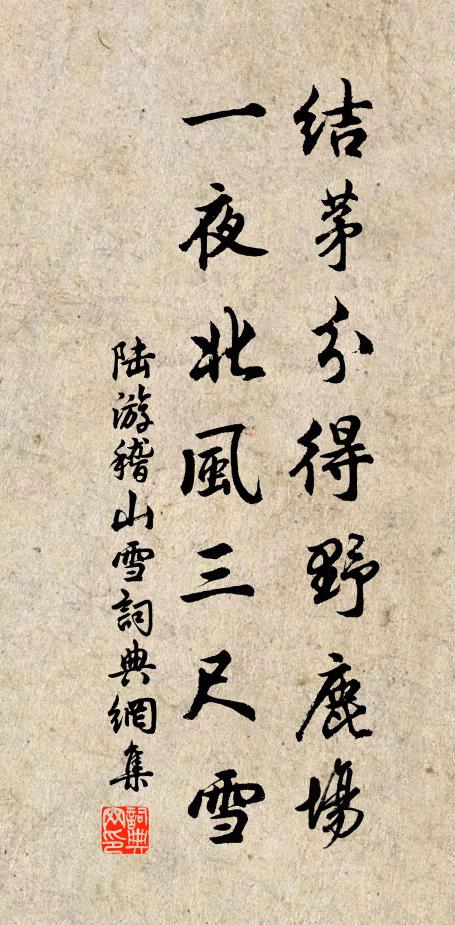 结茅分得野鹿場
一夜北風三尺雪
陆游稽山雪詞典網集
詞典网印